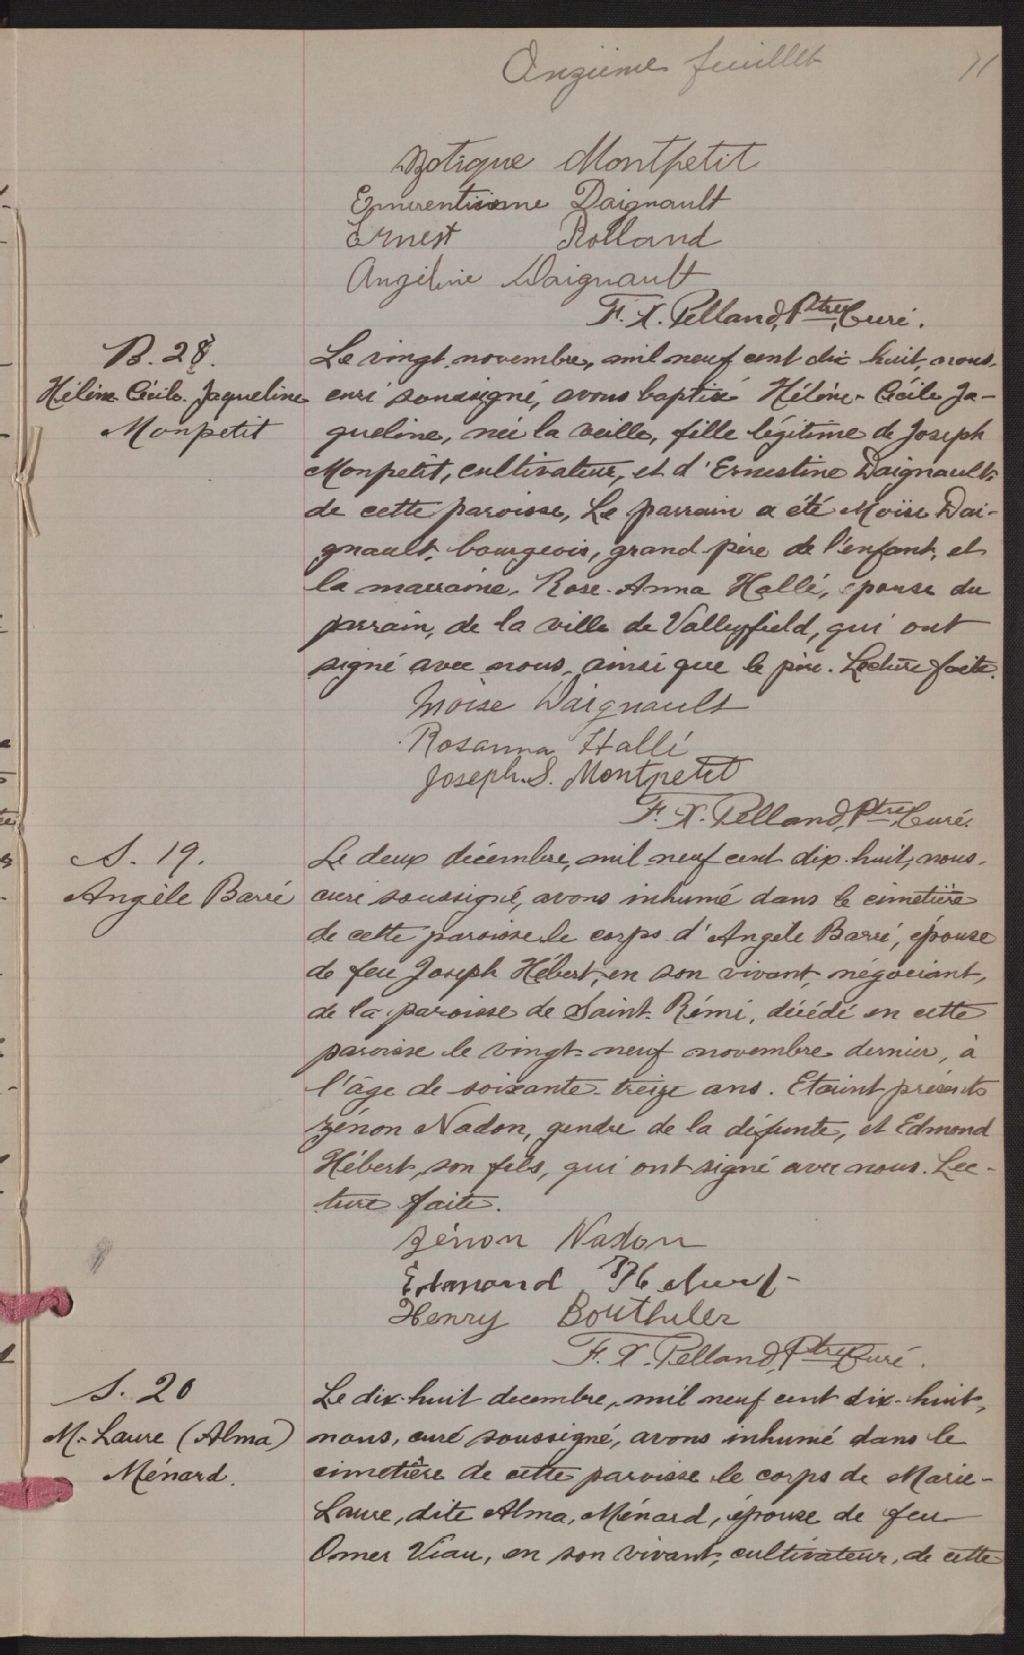 Onzième feuillet 11
Zotique Montpetit
Emerentienne Daignault
Ernest Rolland
Angéline Daignault
F. X. Pelland, Ptre, Curé.
B. 28.
Hélène Cécile Jaqueline
Monpetit
Le vingt novembre, mil neuf cent dix huit, nous,
curé soussigné, avons baptisé Hélène-Cécile Ja-
queline, née la veille, fille légitime de Joseph
Monpetit, cultivateur, et d'Ernestine Daignault,
de cette paroisse, Le parrain a été Moïse Dai-
gnault, bourgeois, grand père de l'enfant, et
la marraine, Rose-Anna Hallé, épouse du
parrain, de la ville de Valleyfield, qui ont
signé avec nous, ainsi que le père. Lecture faite.
Moise Daignault
Rosanna Hallé
Joseph. S. Montpetit
F. X. Pelland, Ptre, Curé.
S. 19.
Angèle Barré
Le deux décembre, mil neuf cent dix-huit, nous,
curé soussigné, avons inhumé dans le cimetière
de cette paroisse le corps d'Angèle Barré, épouse
de feu Joseph Hébert, en son vivant, négociant,
de la paroisse de Saint-Rémi, décédé en cette
paroisse le vingt-neuf novembre dernier, à
l'âge de soixante-treize ans. Etaient présents
Zénon Nadon, gendre de la défunte, et Edmond
Hébert, son fils, qui ont signé avec nous. Lec-
ture faite.
Zénon Nadon
Edmond Hebert
Henry Bouthiler
F. X. Pelland, Ptre, Curé.
S. 20
M. Laure (Alma)
Ménard.
Le dix-huit decembre, mil neuf cent dix-huit,
nous, curé soussigné, avons inhumé dans le
cimetière de cette paroisse le corps de Marie-
Laure, dite Alma, Ménard, épouse de feu
Omer Viau, en son vivant, cultivateur, de cette